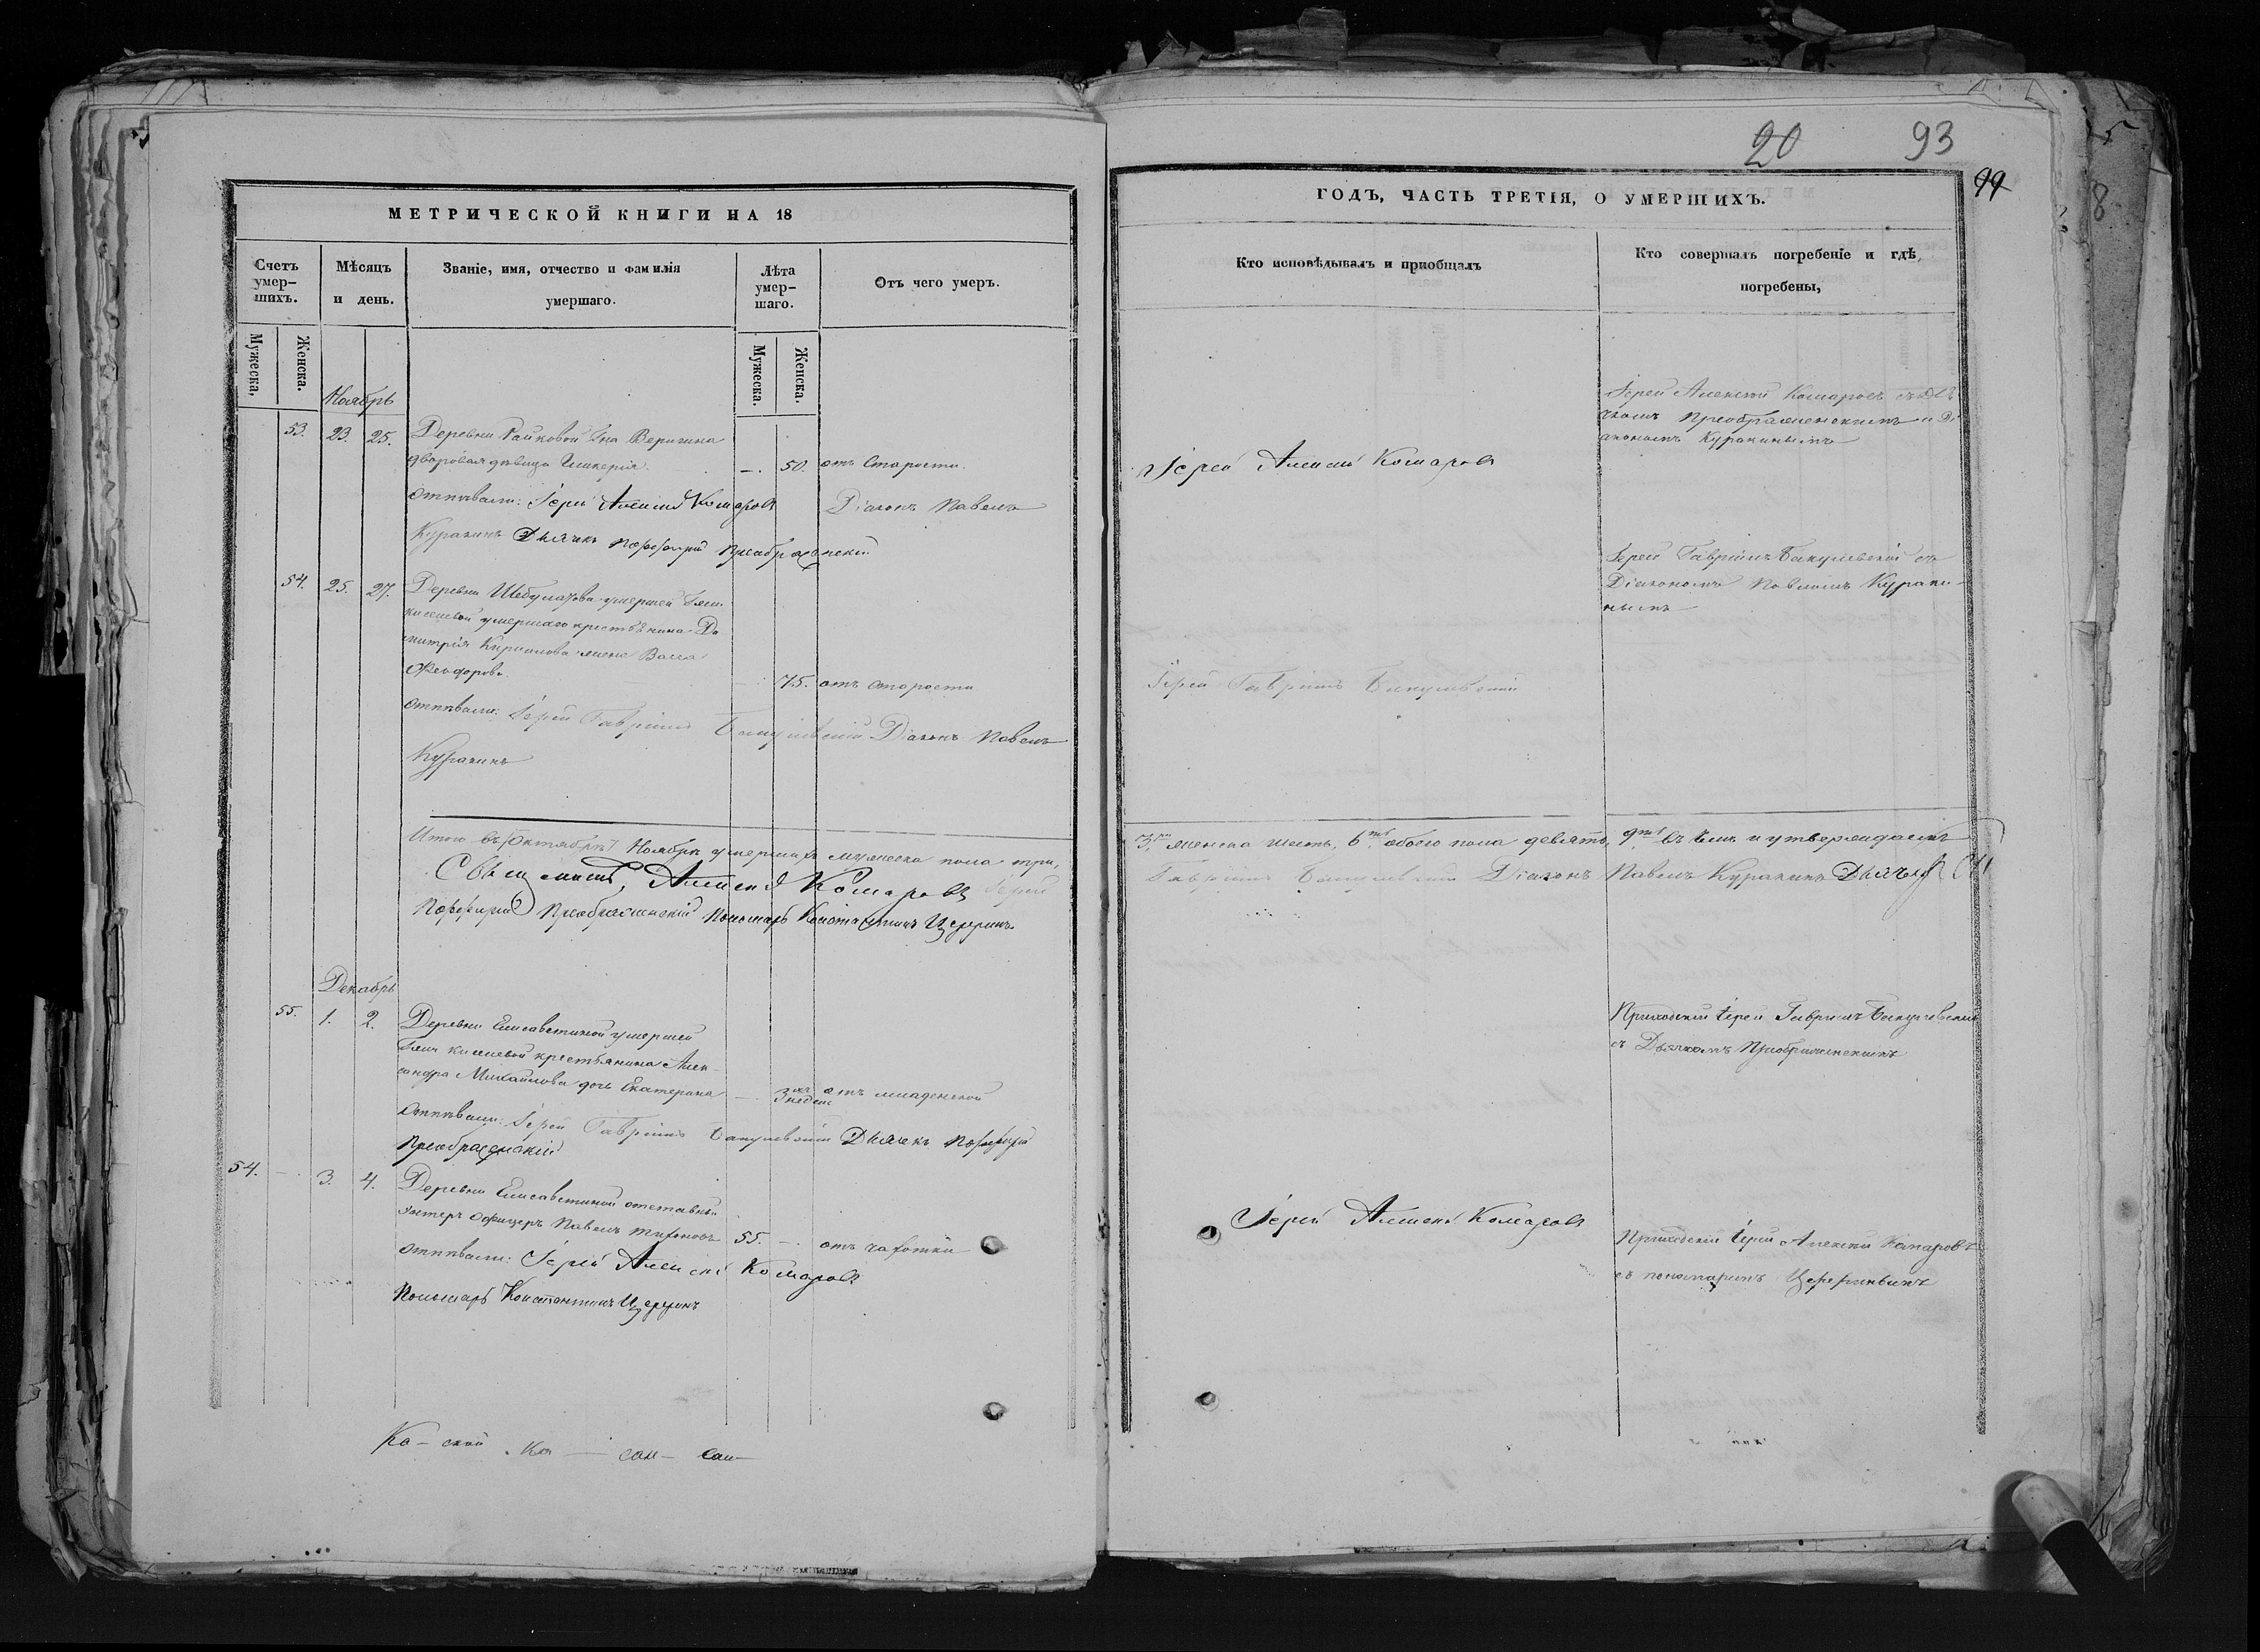 20 93
99
МЕТРИЧЕСКОЙ КНИГИ НА 18
Счетъ умер-шихъ.
Мѣсяцъ и день.
Званіе, имя, отчество и фамилія умершаго.
Лѣта умер-шаго.
Отъ чего умеръ.
Мужеска.
Женска.
Мужеска.
Женска.
Ноябрь
53. 23. 25. Деревни Райковой Г-на Веригина
дворовая дѣвица Гликерія. —. 50. отъ старости.
отпѣвали: Іерей Алексій Комаровъ Діаконъ Павелъ
Куракинъ Дьячекъ Порфирій Преображенскій
54. 25. 27. Деревни умершей
умершаго крестьянина Ди
митрія Кириллова жена Васса
Ѳеодорова. 75. отъ старости
отпѣвали: Іерей Гавріилъ Бакулевскій Діаконъ Павелъ
Куракинъ
Итого въ (Октябрѣ) Ноябрѣ умершихъ мужеска пола три,
Священникъ, Алексій Комаровъ Іерей
Порфирій Преображенскій Пономарь Константинъ
Декабрь
55. 1. 2. Деревни Елисаветиной умершей
крестьянина Алек-
сандра Михайлова дочь Екатерина —. 3хъ недѣль отъ младенской
отпѣвали: Іерей Гавріилъ Бакулевскій Дьячекъ Порфирій
Преображенскій
54. — 3. 4. Деревни Елисаветиной отставный
унтеръ офицеръ Павелъ Тихоновъ 55. —. отъ чахотки
отпѣвали: Іерей Алексій Комаровъ
Пономарь Константинъ
Ка- ской ка —
ГОДЪ, ЧАСТЬ ТРЕТІЯ, О УМЕРШИХЪ.
Кто исповѣдывалъ и пріобщалъ
Кто совершалъ погребеніе и гдѣ
погребены,
Іерей Алексій Комаровъ съ дья
чкомъ Преображенскимъ и Ді
акономъ Куракинымъ
Іерей Алексій Комаровъ
Іерей Гавріилъ Бакулевскій съ
Діакономъ Павломъ Кураки-
нымъ
Іерей Гавріилъ Бакулевскій
3, женска шесть, 6. обоего пола девять, 9. въ чемъ и утверждаемъ
Гавріилъ Бакулевскій Діаконъ Павелъ Куракинъ Дьячекъ
Приходскій Іерей Гавріилъ Бакулевскій
съ Дьячкомъ Преображенскимъ
Іерей Алексій Комаровъ
Приходскій Іерей Алексѣй Комаровъ
съ пономаремъ